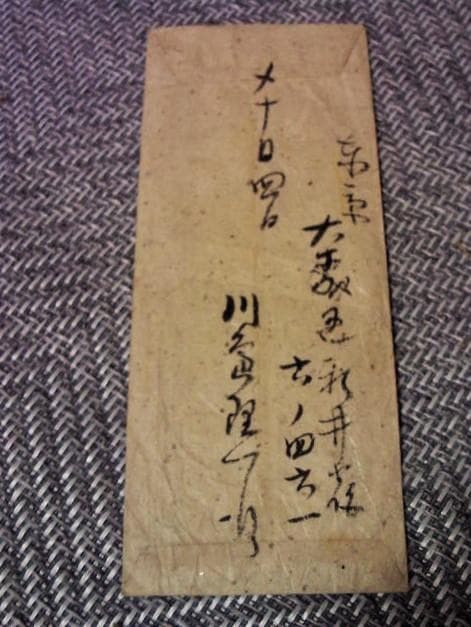 東京
大森区新井宿
六ノ四六一
川島理一郎
〆十月四日